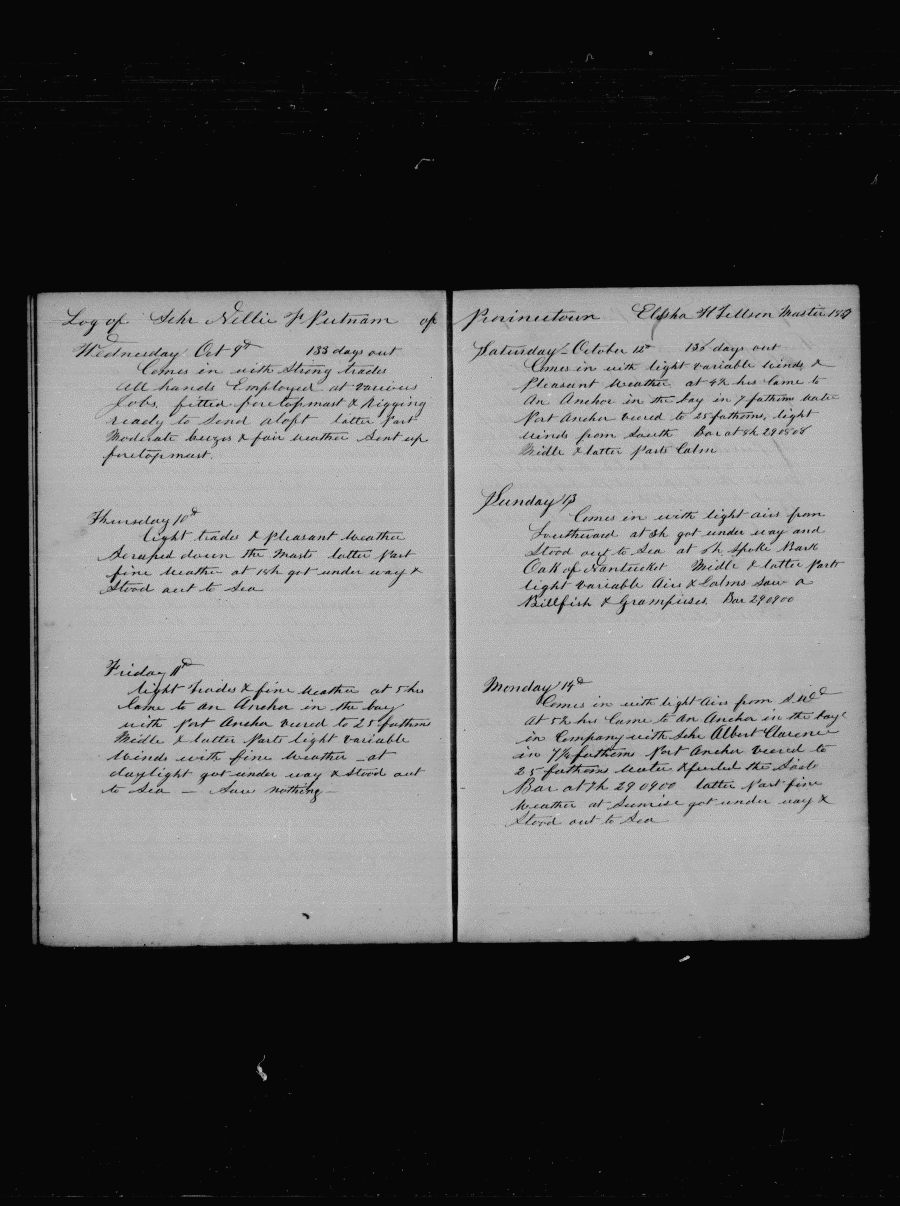 Log of Schr Nellie F Putnam of
Wednesday Oct 9th 133 days out
Comes in with Strong trades
All hands Employed at various
Jobs, fitted foretopmast & Rigging
ready to Send aloft latter Part
Moderate breezes & fair weather Sent up
foretopmast.
Thursday 10th
light trades & Pleasant Weather
Scraped down the Masts latter Part
fine Weather at 18h got under way &
Stood out to Sea
Friday 11th
light trades & fine Weather at 5 hrs
Came to an Anchor in the bay
with Port Anchor veered to 25 fathoms
Midle & latter Parts light variable
Winds with fine Weather – at
daylight got under way & Stood out
to Sea – Saw nothing –
Provincetown Elisha H Master
Saturday – October 12th days out
Comes in with light variable winds &
Pleasant Weather at hrs Came to
An Anchor in the bay in 7 fathoms Water
Port Anchor veered to 25 fathoms, light
winds from South Bar at 8h
Midle & latter Parts Calm
Sunday 13
Comes in with light airs from
Southward at 3h got under way and
Stood out to Sea at h Spoke Bark
Oak of Nantucket Midle & latter Parts
light variable Airs & Calms Saw a
Billfish & Grampuses. Bar 290900
Monday 14th
Comes in with light Airs from S.Wd
At 5h hrs Came to An Anchor in the bay
in Company with Schr Albert Clarence
in 7½ fathoms Port Anchor veered to
25 fathoms Water & furled the Sails
Bar at 7h 290900 latter Part fine
Weather at Sunrise got under way &
Stood out to Sea